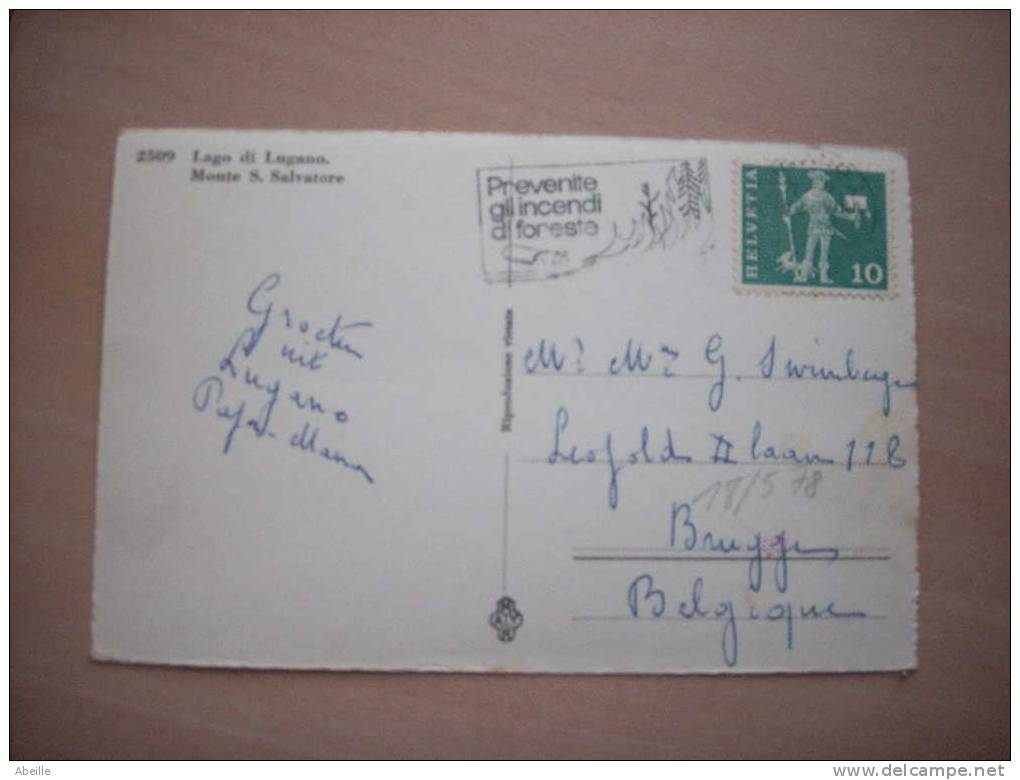 2509 Lago di Lugano.
Monte S. Salvatore
Prevenite
gli incendi
di foreste
HELVETIA
10
Groeten
uit
Lugano
Papa-Mama
Riproduzione vietata
Mr Mr G.
Leopold II laan 118
18/5 78
Brugge
Belgique
Abeille
www.delcampe.net